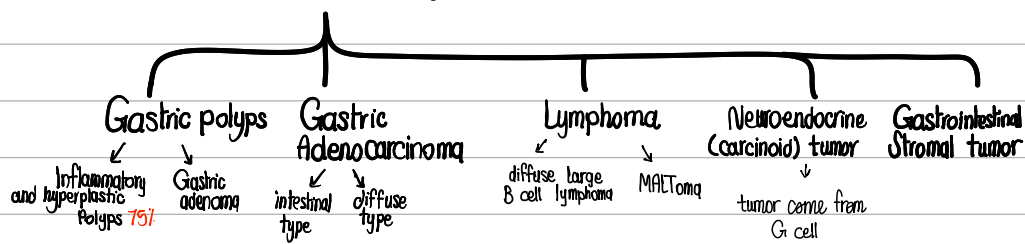 Gastric polyps
Inflammatory
and hyperplastic
Polyps 75%
Gastric
adenoma
Gastric
Adenocarcinoma
intestinal
type
diffuse
type
Lymphoma
diffuse large
B cell lymphoma
MALToma
Neuroendocrine
(carcinoid) tumor
tumor come from
G cell
Gastrointestinal
Stromal tumor